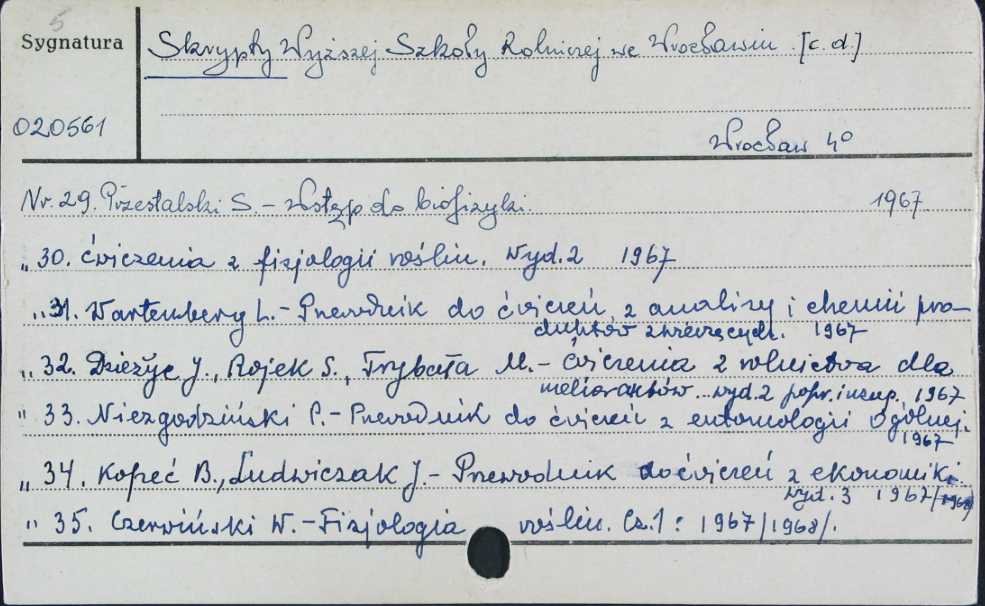 5
Sygnatura
Skrypty Wyższej Szkoły Rolniczej we Wrocławiu. [c.d.]
020561
Wrocław 4°
Nr. 29. Przestalski S. - Wstęp do biofizyki. 1967
„ 30. Ćwiczenia z fizjologii roślin. Wyd. 2 1967
„ 31. Wartenberg L. - Przewodnik do ćwiczeń z analizy i chemii pro-
duktów zwierzęcych. 1967
„ 32. Dzieżyc J., Rojek S., Trybała M. - Ćwiczenia z rolnictwa dla
meliorantów wyd. 2 popr. i uzup. 1967
„ 33. Niezgodziński P. - Przewodnik do ćwiczeń z entomologii ogólnej.
1967
„ 34. Kopeć B., Ludwiczak J. - Przewodnik do ćwiczeń z ekonomiki
wyd. 3 1967/1968/
„ 35. Czerwiński W. - Fizjologia roślin. Cz. 1: 1967/1968/.